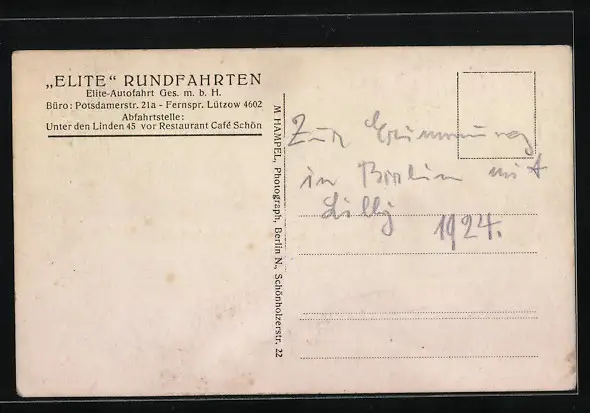 „ELITE“ RUNDFAHRTEN
Elite-Autofahrt Ges. m. b. H.
Büro: Potsdamerstr. 21a - Fernspr. Lützow 4602
Abfahrtstelle:
Unter den Linden 45 vor Restaurant Café Schön
M HAMPEL, Photograph, Berlin N., Schönholzerstr. 22
Zur Erinnerung
in Berlin mit
Lilly 1924.